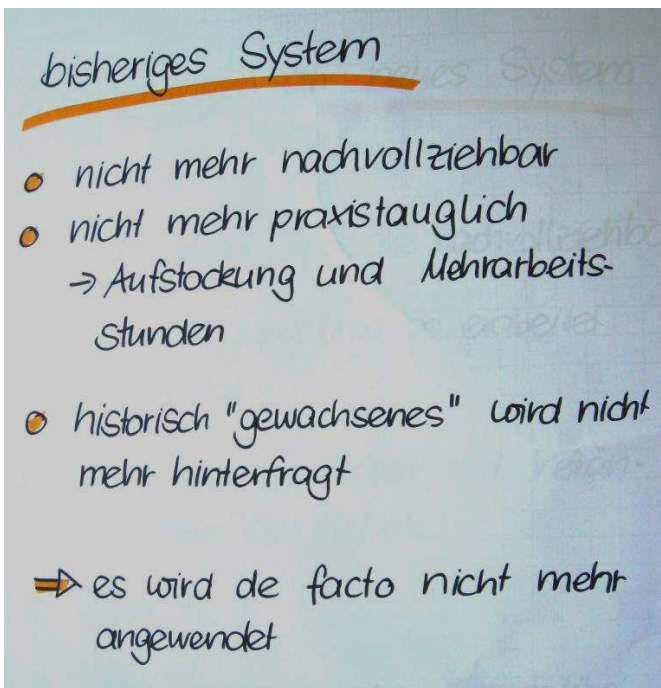 bisheriges System
nicht mehr nachvollziehbar
nicht mehr praxistauglich
→ Aufstockung und Mehrarbeits-
stunden
historisch "gewachsenes" wird nicht
mehr hinterfragt
⇒ es wird de facto nicht mehr
angewendet
neues System